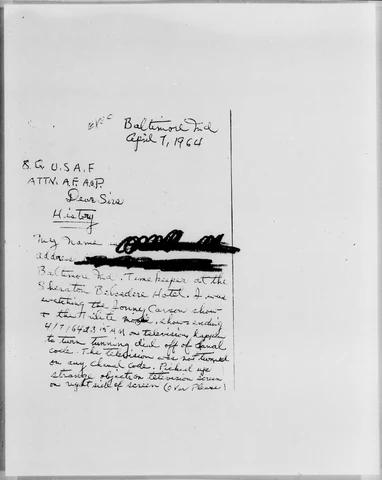 Baltimore Md
April 7, 1964
U.S.A.F
ATTN. A.F.
Dear Sirs
History
My Name
address
Baltimore Md. Time keeper at the
Sheraton Belvedere Hotel. I was
watching the Jonny Carson show
+ the Nite show ending
4/7/64 on television happen
to turn tunning dial off of canal
code. The television was not turned
on any chenal code. Picked up
strange object on television screen
on right side of screen (over Please)